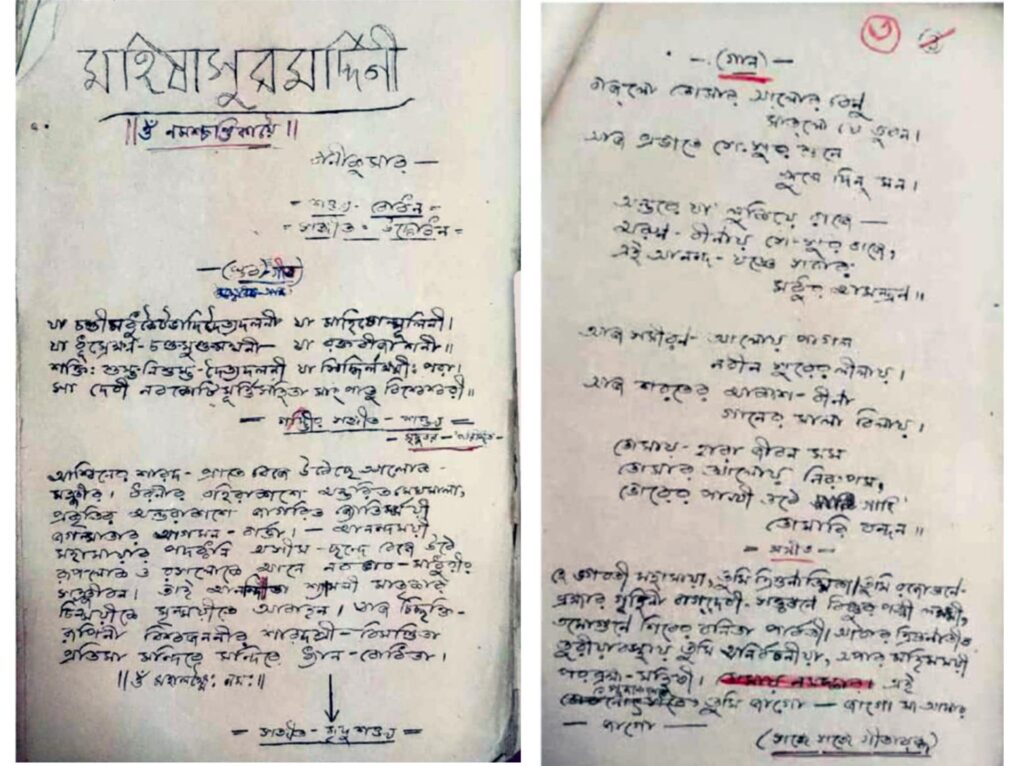 মহিষাসুরমর্দ্দিনী
॥ ওঁ নমশ্চণ্ডিকায়ৈ ॥
বাণীকুমার —
= শঙ্খ - =
= সঙ্গীত - =
যা চণ্ডী মধুকৈটভাদিদৈত্যদলনী যা মাহিষোন্মূলিনী।
যা ধূম্রেক্ষণ-চণ্ডমুণ্ডমথনী যা রক্তবীজাশনী॥
শক্তিঃ শুম্ভ-নিশুম্ভ-দৈত্যদলনী যা সিদ্ধিলক্ষ্মীঃ পরা।
সা দেবী নবকোটিমূর্ত্তিসহিতা মাং পাতু বিশ্বেশ্বরী॥
সঙ্গীত - শঙ্খ =
আশ্বিনের শারদ-প্রাতে বেজে উঠেছে আলোক-
মঞ্জীর। ধরণীর বহিরাকাশে অন্তরিত মেঘমালা,
প্রকৃতির অন্তরাকাশে জাগরিত জ্যোতির্ম্ময়ী
জগন্মাতার আগমন-বার্ত্তা। — আনন্দময়ী
মহামায়ার পদধ্বনি অসীম-ছন্দে বেজে উঠে
রূপলোক ও রসলোকে আনে নবভাব-মাধুরীর
সঞ্জীবন। তাই আনন্দিতা শ্যামলী মাতৃকার
চিন্ময়ীকে মৃন্ময়ীতে আবাহন। আজ চিচ্ছক্তি-
রূপিণী বিশ্বজননীর শারদশ্রী-বিমণ্ডিতা
প্রতিমা মন্দিরে মন্দিরে ধ্যান-বোধিতা।
॥ ওঁ মহালক্ষ্মৈঃ নমঃ॥
= সঙ্গীত - মৃদু শঙ্খ =
৩
— (গান) —
বাজলো তোমার আলোর বেণু
মাতলো যে ভুবন।
আজ প্রভাতে সে-সুর শুনে
খুলে দিনু মন।
অন্তরে যা' লুকিয়ে রাজে —
অরুণ-বীণায় সে-সুর বাজে,
এই আনন্দ-যজ্ঞে সবার
মধুর আমন্ত্রণ॥
আজ সমীরণ-আলোয় পাগল
নবীন সুরের লীলায়।
আজ শরতের আকাশ-বীণা
গানের মালা বিলায়।
তোমায়-হারা জীবন মম
তোমার আলোয় নিরুপম,
ভোরের পাখী ওঠে গাহি
তোমারি বন্দন॥
= সঙ্গীত =
হে ভগবতী মহামায়া, তুমি ত্রিগুণাত্মিকা। তুমি রজোগুণে-
ব্রহ্মার গৃহিণী বাগ্‌দেবী-সত্ত্বগুণে বিষ্ণুর পত্নী লক্ষ্মী,
তমোগুণে শিবের বনিতা পার্বতী। আবার ত্রিগুণাতীত
তুরীয়াবস্থায় তুমি অনির্বচনীয়া, অপার মহিমময়ী
পরব্রহ্ম-মহিষী। এই
তুমি জাগো — জাগো মা আমার
— জাগো —